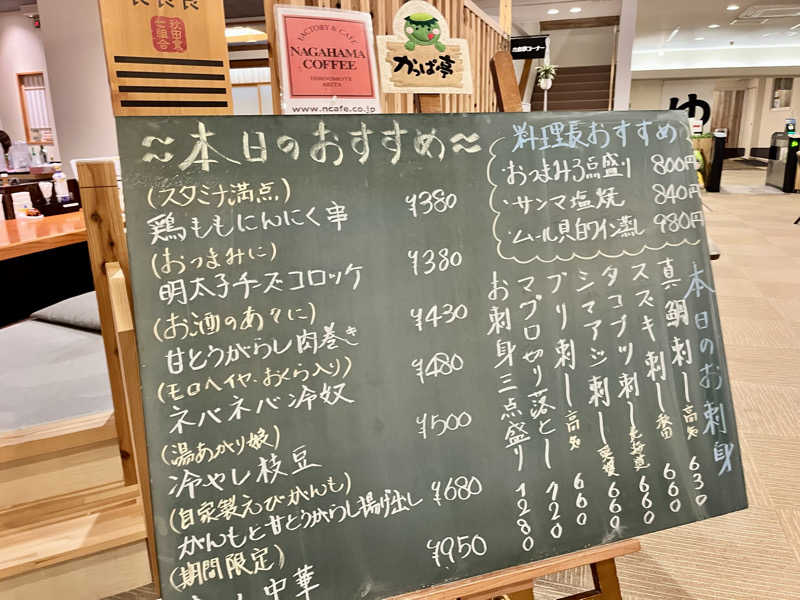 秋田食
七組合
FACTORY & CAFE
NAGAHAMA
COFFEE
www.ncafe.co.jp
かっぱ亭
ゆ
≈本日のおすすめ≈
(スタミナ満点)
鶏ももにんにく串 ¥380
(おつまみに)
明太子チーズコロッケ ¥380
(お酒のあてに)
甘とうがらし肉巻き ¥430
(モロヘイヤ、おくら入り)
ネバネバン冷奴 ¥480
(湯あがり娘)
冷やし枝豆 ¥500
(自家製えびがんも)
がんもと甘とうがらし揚げ出し ¥680
(期間限定)
中華 ¥950
料理長おすすめ
おつまみ3点盛り 800円
サンマ塩焼 840円
ムール貝白ワイン蒸し 980円
本日のお刺身
真鯛刺し 高知 630
スズキ刺し 秋田 660
タコブツ刺し 北海道 660
シマアジ刺し 愛媛 660
ブリ刺し 高知 660
マグロ切り落とし 720
お刺身三点盛り 1280